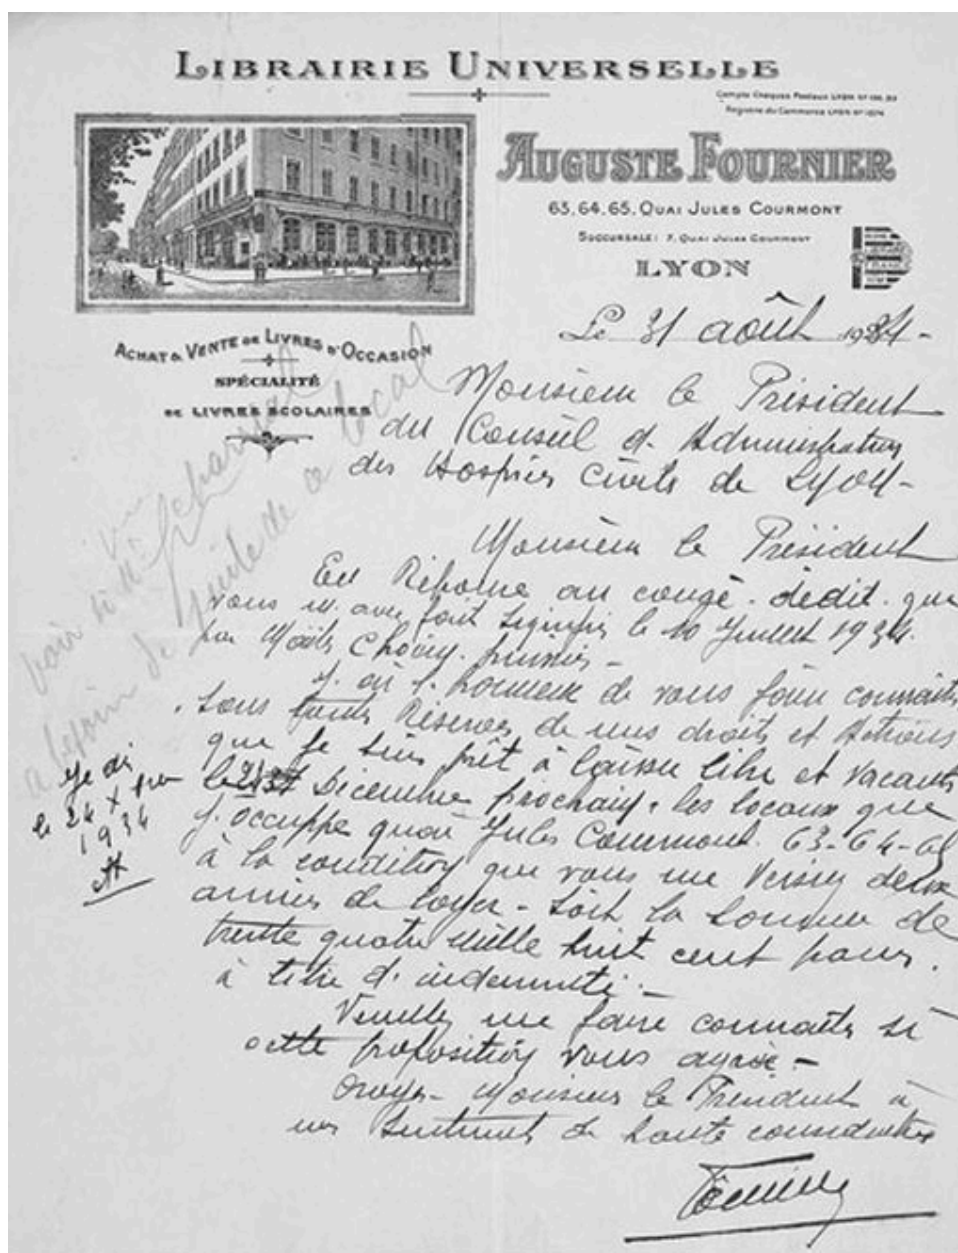 LIBRAIRIE UNIVERSELLE
AUGUSTE FOURNIER
63, 64, 65, QUAI JULES COURMONT
SUCCURSALE : 7, QUAI JULES COURMONT
LYON
ACHAT & VENTE DE LIVRES D'OCCASION
SPÉCIALITÉ
DE LIVRES SCOLAIRES
Le 31 août 1934-
Monsieur le Président
du Conseil d. Administration
des Hospices Civils de Lyon-
Monsieur le Président
En Réponse au congé. dédit. que
vous m. avez fait signifier le 10 Juillet 1934.
par
j. ai l. honneur de vous faire connaître
sous toutes Réserves de mes droits et Actions
que je suis prêt à laisser libre et vacants
le Décembre prochain. les locaux que
j. occuppe quai Jules Courmont. 63-64-65
à la condition que vous me versiez deux
années de loyer - soit la somme de
trente quatre mille huit cent francs.
à titre d. indemnité.-
Veuillez me faire connaître si
cette proposition vous agrée.-
Croyez- Monsieur le Président à
mes sentiments de haute considération
le 24 X
1934